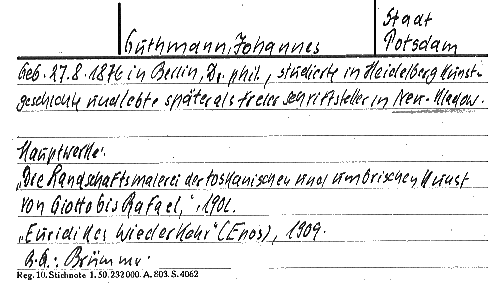 Guthmann, Johannes
Stadt
Potsdam
Geb. 27.8.1876 in Berlin, Dr. phil., studierte in Heidelberg Kunst-
geschichte und lebte später als freier Schriftsteller in Neu-Kladow.
Hauptwerke:
„Die Landschaftsmalerei der toskanischen und umbrischen Kunst
von Giotto bis Rafael," 1902.
„Euridikes Wiederkehr" (Epos), 1909.
Brümmer
Reg. 10. Stichnote 1. 50. 232000. A. 803. S. 4062